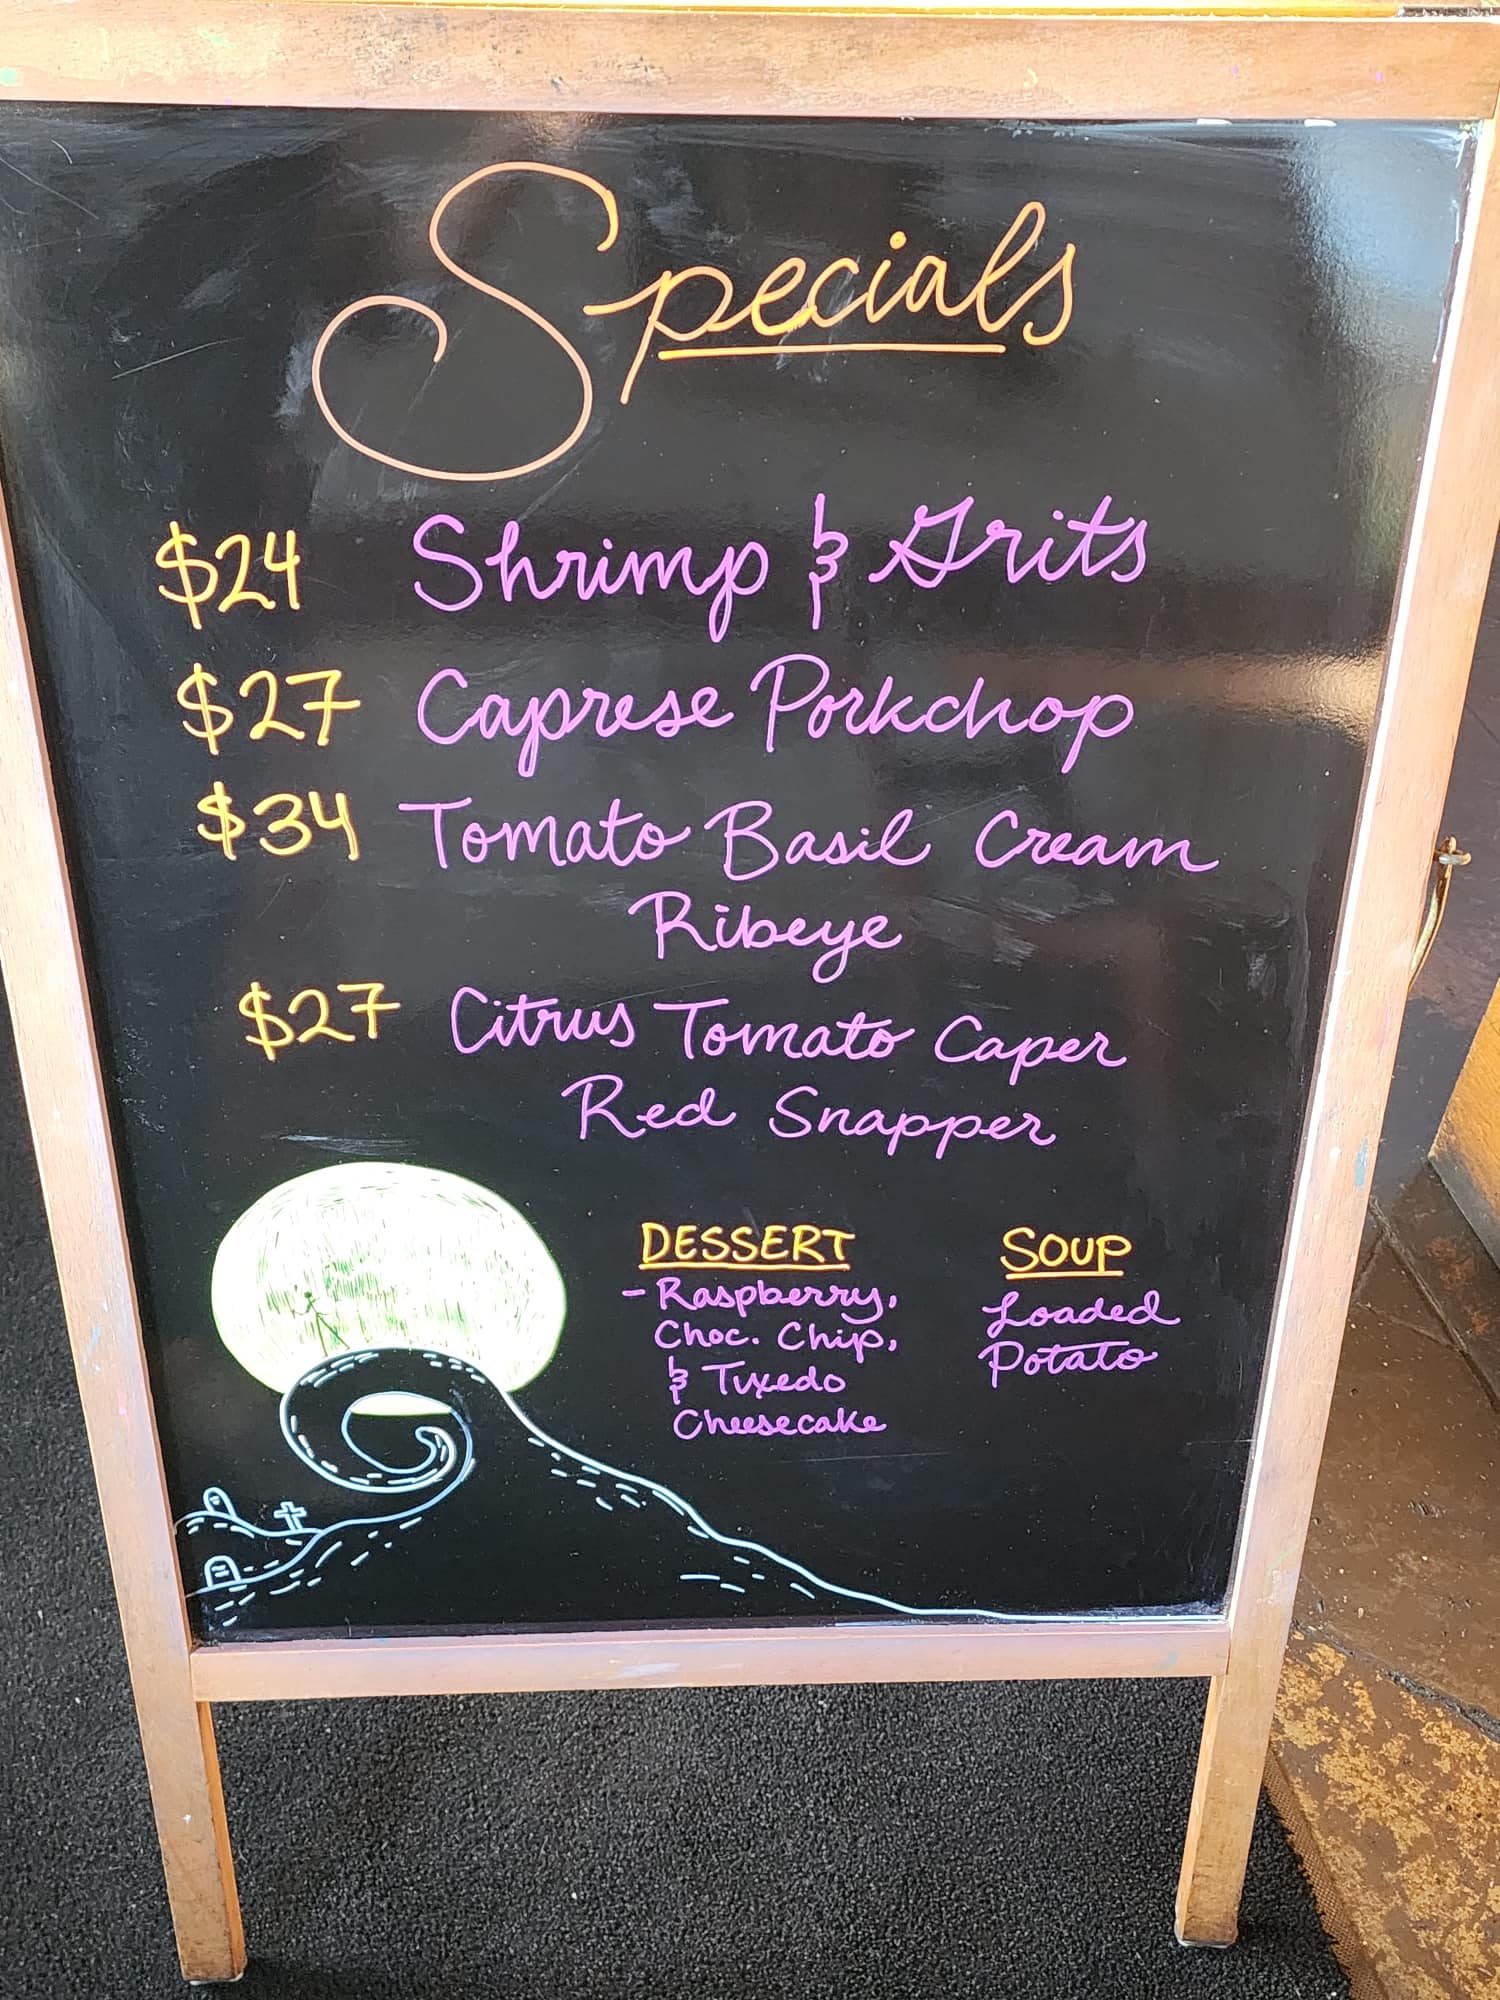 Specials
$24 Shrimp & Grits
$27 Caprese Porkchop
$34 Tomato Basil Cream
Ribeye
$27 Citrus Tomato Caper
Red Snapper
DESSERT
- Raspberry,
Choc. Chip,
& Tuxedo
Cheesecake
SOUP
Loaded
Potato